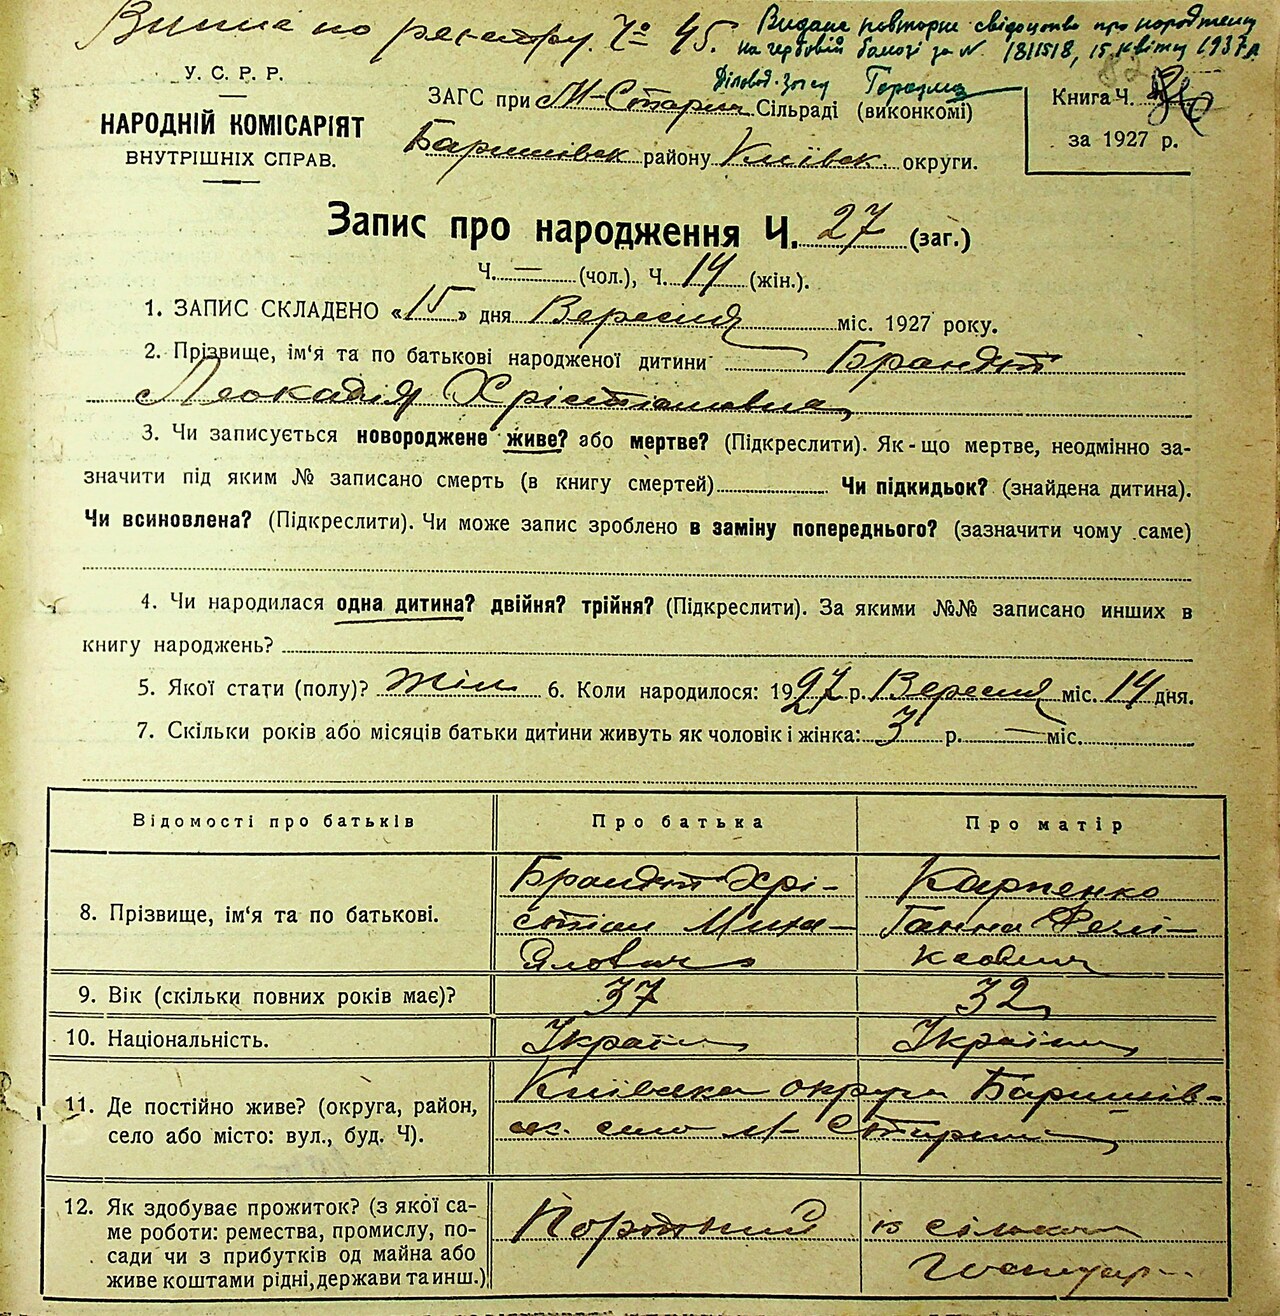 по реєстру. № 45.
Видане повторне свідоцтво про народження
на гербовій бомозі за № 1811518, 15 квітня 1937 р.
Діловод-Загсу
У. С. Р. Р.
НАРОДНІЙ КОМІСАРІЯТ
ВНУТРІШНІХ СПРАВ.
ЗАГС при М-Стариц Сільраді (виконкомі)
Баришівськ району Київськ. округи.
Книга Ч.
за 1927 р.
Запис про народження Ч. 27 (заг.)
Ч. — (чол.), Ч. 14 (жін.).
1. ЗАПИС СКЛАДЕНО «15» дня Вересня міс. 1927 року.
2. Прізвище, ім'я та по батькові народженої дитини Брандт
Леокадія Хрістіановна
3. Чи записується новороджене живе? або мертве? (Підкреслити). Як-що мертве, неодмінно за-
значити під яким № записано смерть (в книгу смертей) Чи підкидьок? (знайдена дитина).
Чи всиновлена? (Підкреслити). Чи може запис зроблено в заміну попереднього? (зазначити чому саме)
4. Чи народилася одна дитина? двійня? трійня? (Підкреслити). За якими №№ записано инших в
книгу народжень?
5. Якої стати (полу)? Жін 6. Коли народилося: 1927 р. Вересня міс. 14 дня.
7. Скільки років або місяців батьки дитини живуть як чоловік і жінка: 3 р. — міс.
Відомості про батьків Про батька Про матір
8. Прізвище, ім'я та по батькові.
Брандт Хрі-
стіан Миха-
йлович
Карпенко
Ганна Фелі-
ксовна
9. Вік (скільки повних років має)? 37 32
10. Національність. Україн Україн
11. Де постійно живе? (округа, район,
село або місто: вул., буд. Ч).
Київська округа Баришів-
ск. село М-Стариця
12. Як здобуває прожиток? (з якої са-
ме роботи: ремества, промислу, по-
сади чи з прибутків од майна або
живе коштами рідні, держави та инш.)
із сільськог
Господар-